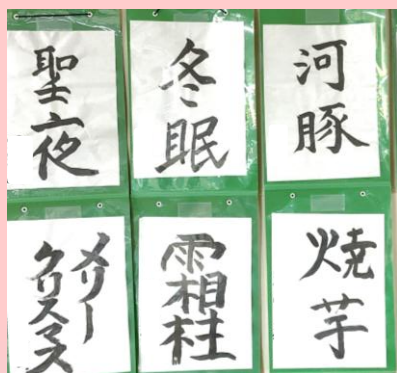 聖夜
冬眠
河豚
メリー
クリスマス
霜柱
焼芋